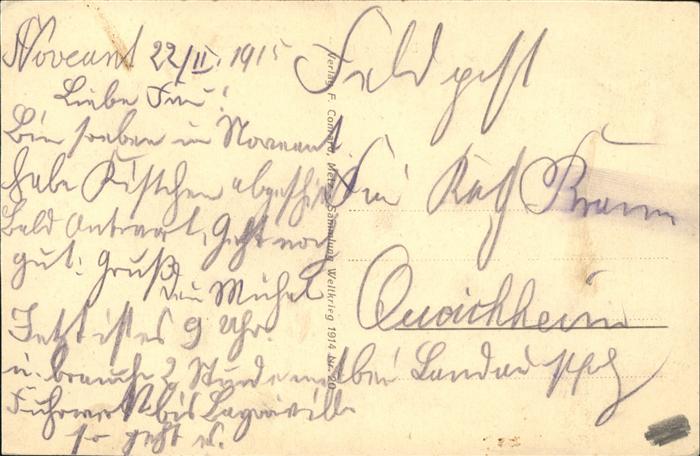 Noveant 22/II. 1915
Liebe Frau!
Bin soeben in Noveant
habe Kistchen abgeschickt
Bald Antwort, geht noch
gut. Gruß
Dein Michel
Jetzt ist es 9 Uhr.
u. brauche 2 Stunde mit
Fuhrwerk bis
so geht es.
Verlag F. Conrard, Metz. Sammlung Weltkrieg 1914 Nr. 20
Feldpost
Frau Kath Braun
Queichheim
bei Landau Pfalz